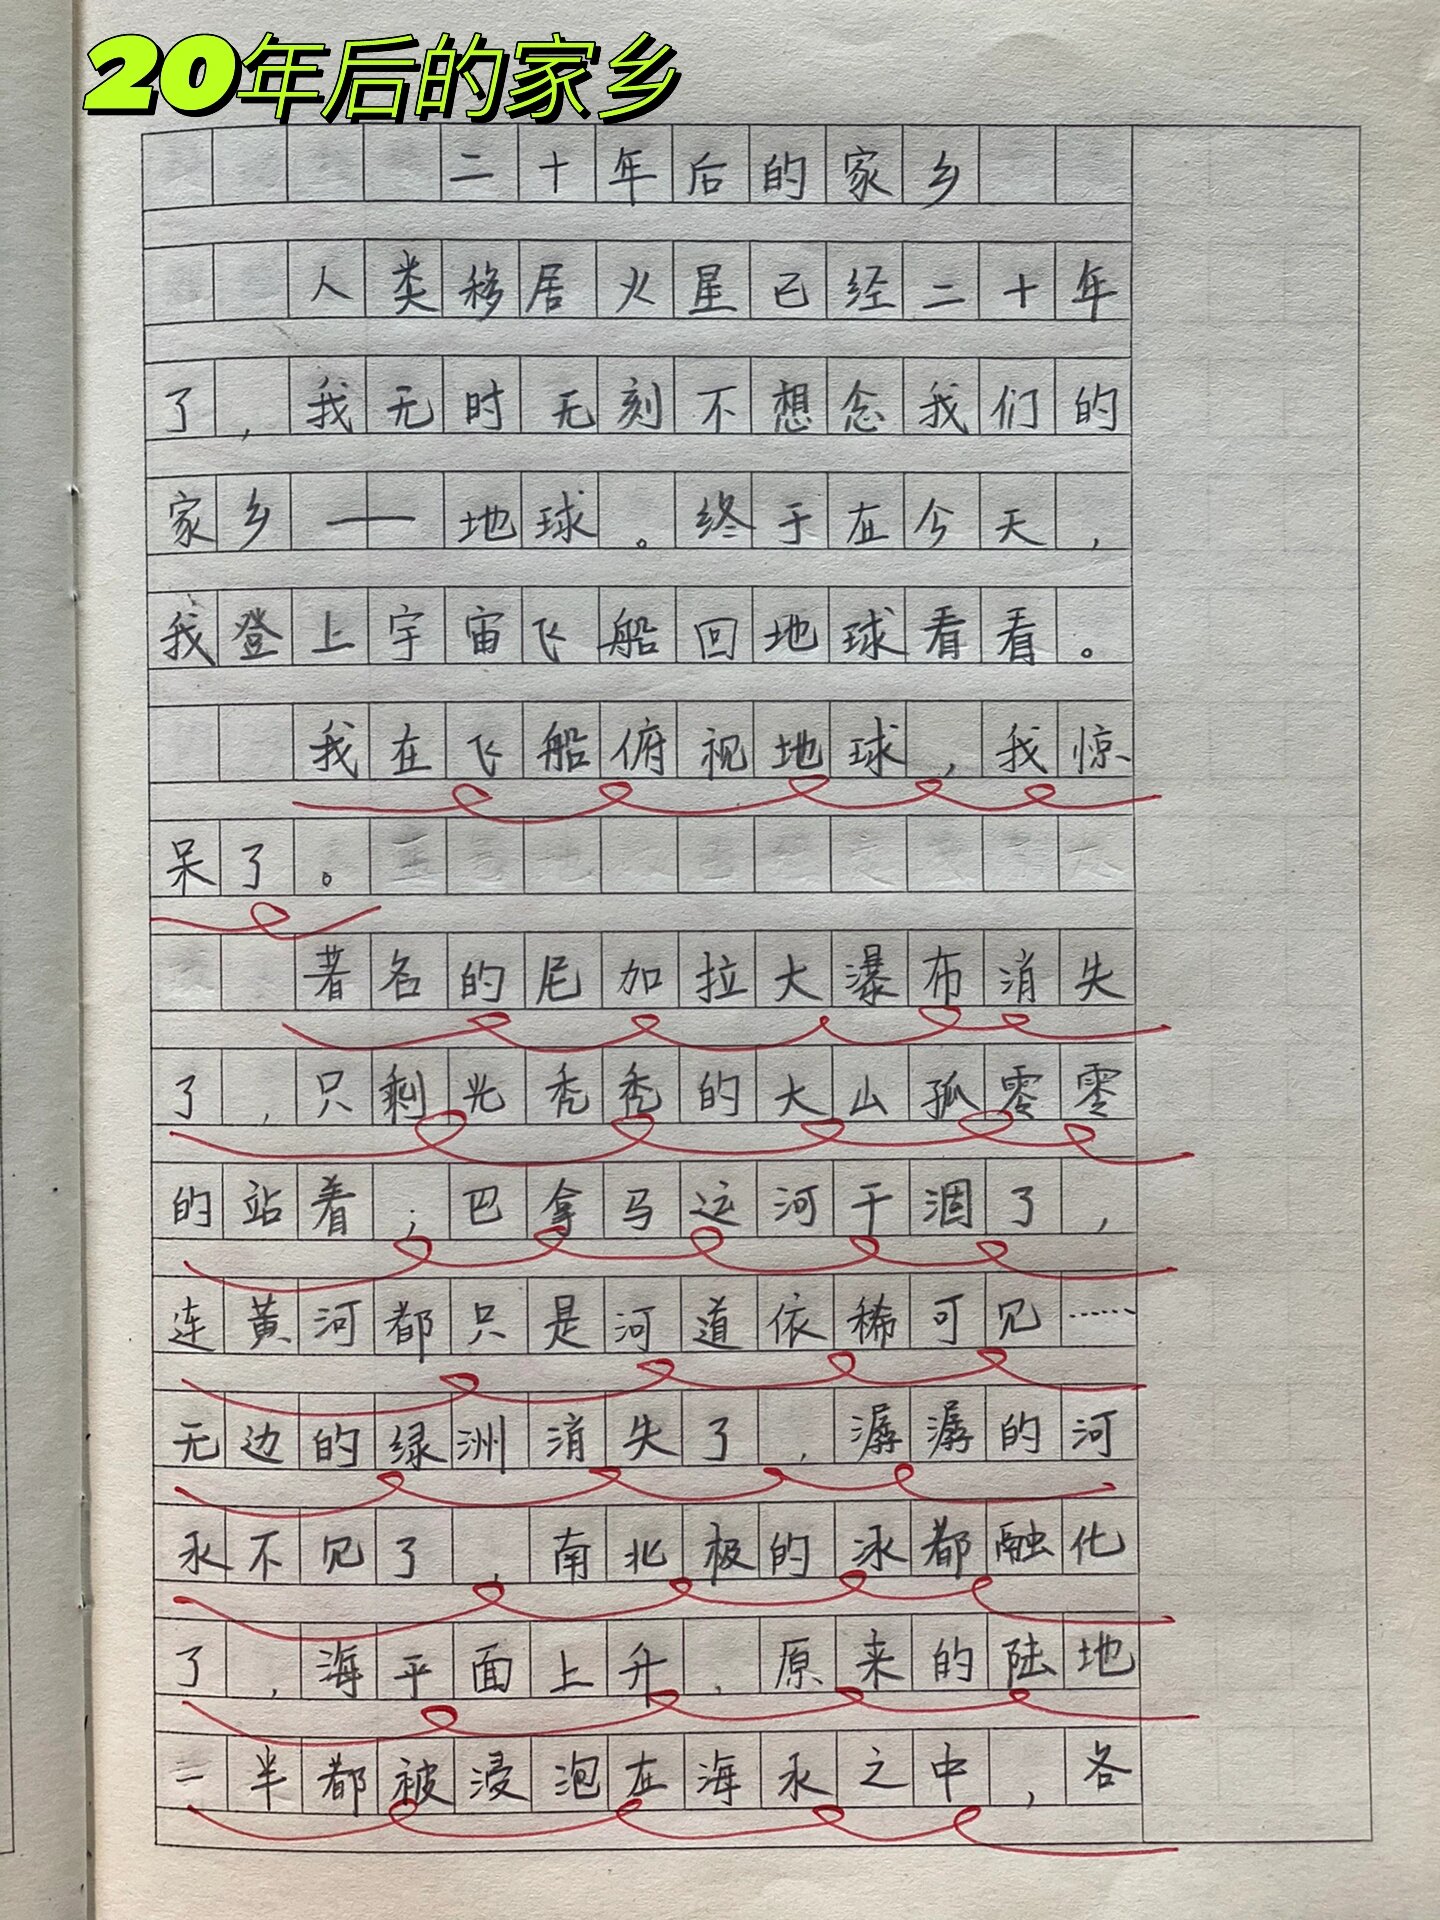 20年后的家乡
二十年后的家乡
人类移居火星已经二十年
了，我无时无刻不想念我们的
家乡——地球。终于在今天，
我登上宇宙飞船回地球看看。
我在飞船俯视地球，我惊
呆了。
著名的尼加拉大瀑布消失
了，只剩光秃秃的大山孤零零
的站着；巴拿马运河干涸了，
连黄河都只是河道依稀可见……
无边的绿洲消失了，潺潺的河
水不见了，南北极的冰都融化
了，海平面上升，原来的陆地
一半都被浸泡在海水之中，各